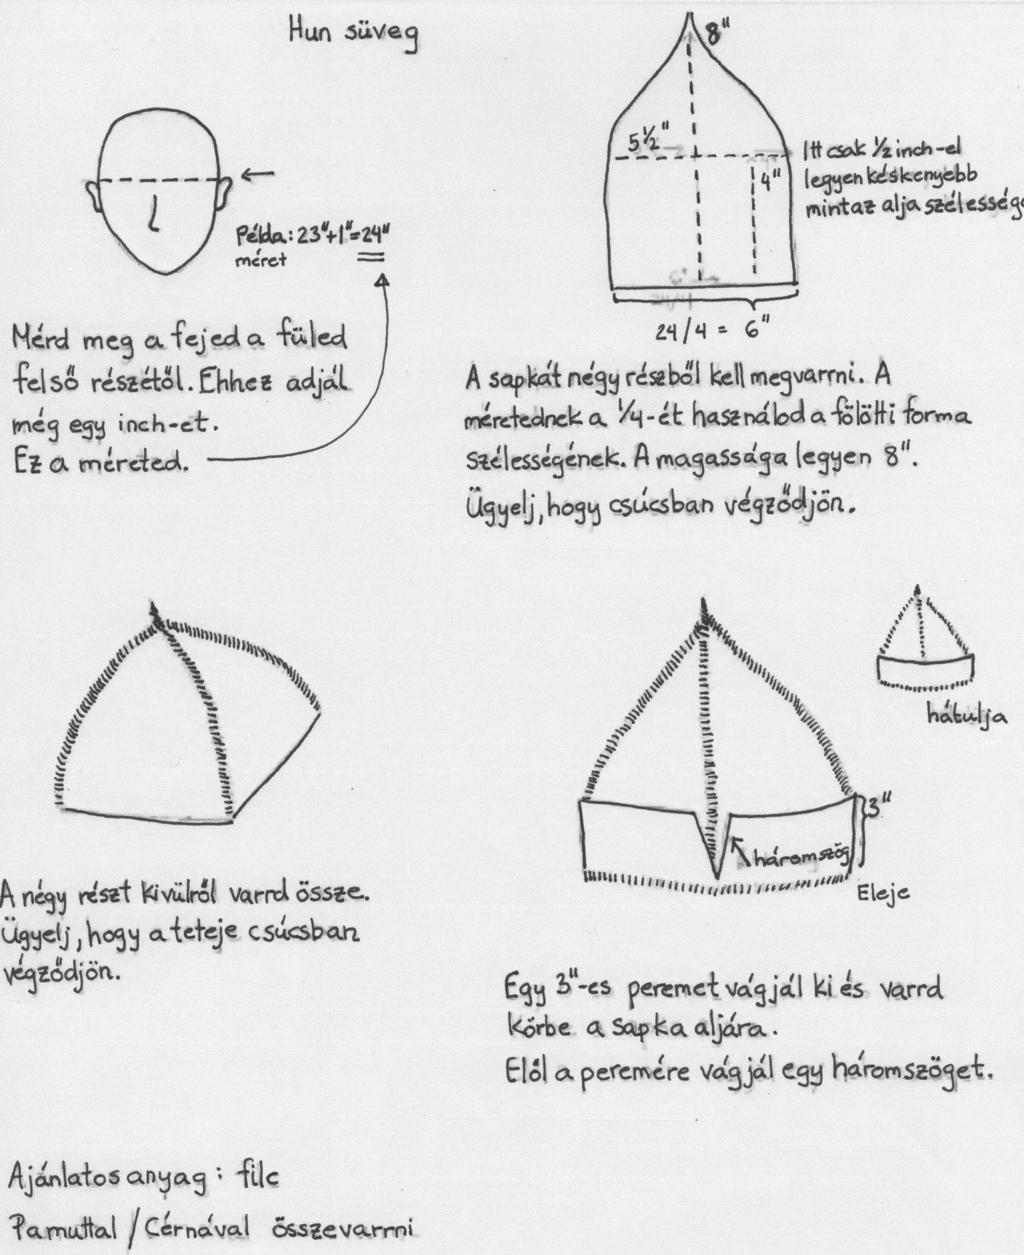 Hun süveg
Példa: 23"+1"=24"
méret
Mérd meg a fejed a füled
felső részétől. Ehhez adjál
még egy inch-et.
Ez a méreted.
8"
5½"
4"
Itt csak ½ inch-el
legyen késkenyebb
mint az alja szélessége
24/4 = 6"
A sapkát négy részből kell megvarrni. A
méretednek a ¼-ét használod a fölötti forma
szélességének. A magassága legyen 8".
Ügyelj, hogy csúcsban végződjön.
A négy részt kivülről varrd össze.
Ügyelj, hogy a teteje csúcsban
végződjön.
hátulja
3"
háromszög
Eleje
Egy 3"-es peremet vágjál ki és varrd
körbe a sapka aljára.
Elől a peremére vágjál egy háromszöget.
Ajánlatos anyag: filc
Pamuttal / Cérnával összevarrni